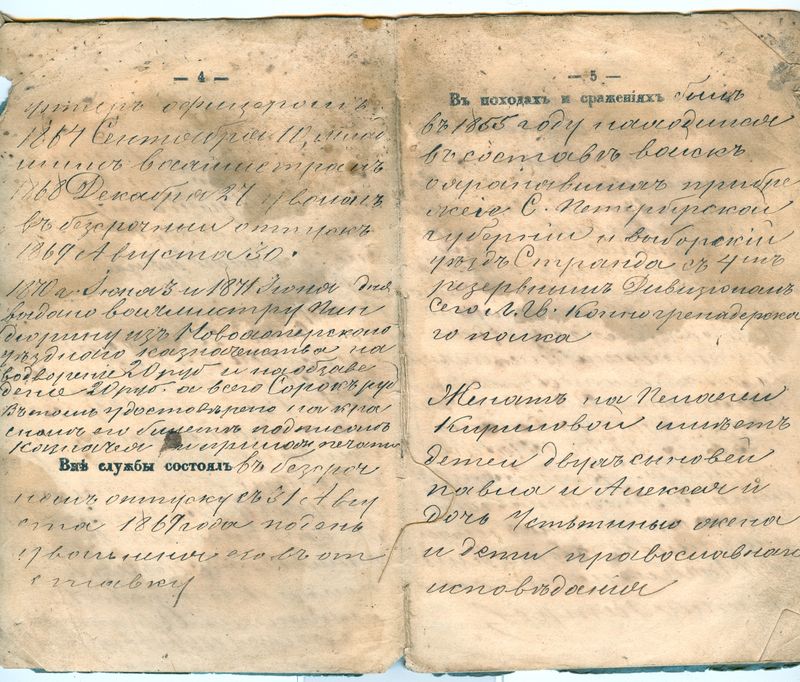 — 4 —
унтеръ офицеромъ
1864 Сентября 10, млад
шимъ вахмистромъ
1868 Декабря 27 уволенъ
въ безсрочный отпускъ
1869 Августа 30.
1870 г. Іюня 3 и 1871 Іюня дня
выдано вахмистру Пин
дюрину изъ Новооскольского
уѣздного казначейства на
водвореніе 20 руб и на обзаве
деніе 20 руб а всего Сорокъ руб
Въ томъ удостовѣрено на кра
сномъ его билетѣ подписомъ
казначея и приложен печати
Внѣ службы состоялъ въ безсроч
номъ отпуску съ 31 Авгу
ста 1869 года по день
увольнения его въ от
ставку
— 5 —
Въ походахъ и сраженіяхъ былъ
въ 1855 году находился
въ составѣ войскъ
охранявшихъ прибре
жіе С. Петербургской
губерніи и выборскій
уѣздъ Странда съ 4мъ
резервнымъ Дивизіономъ
сего Л. Гв. Конногренадерска
го полка
Женатъ на Пелагеи
Кириловой имѣетъ
детей двухъ сыновей
павла и Алексея и
дочь Устѣнью жена
и дети православнаго
исповѣданія